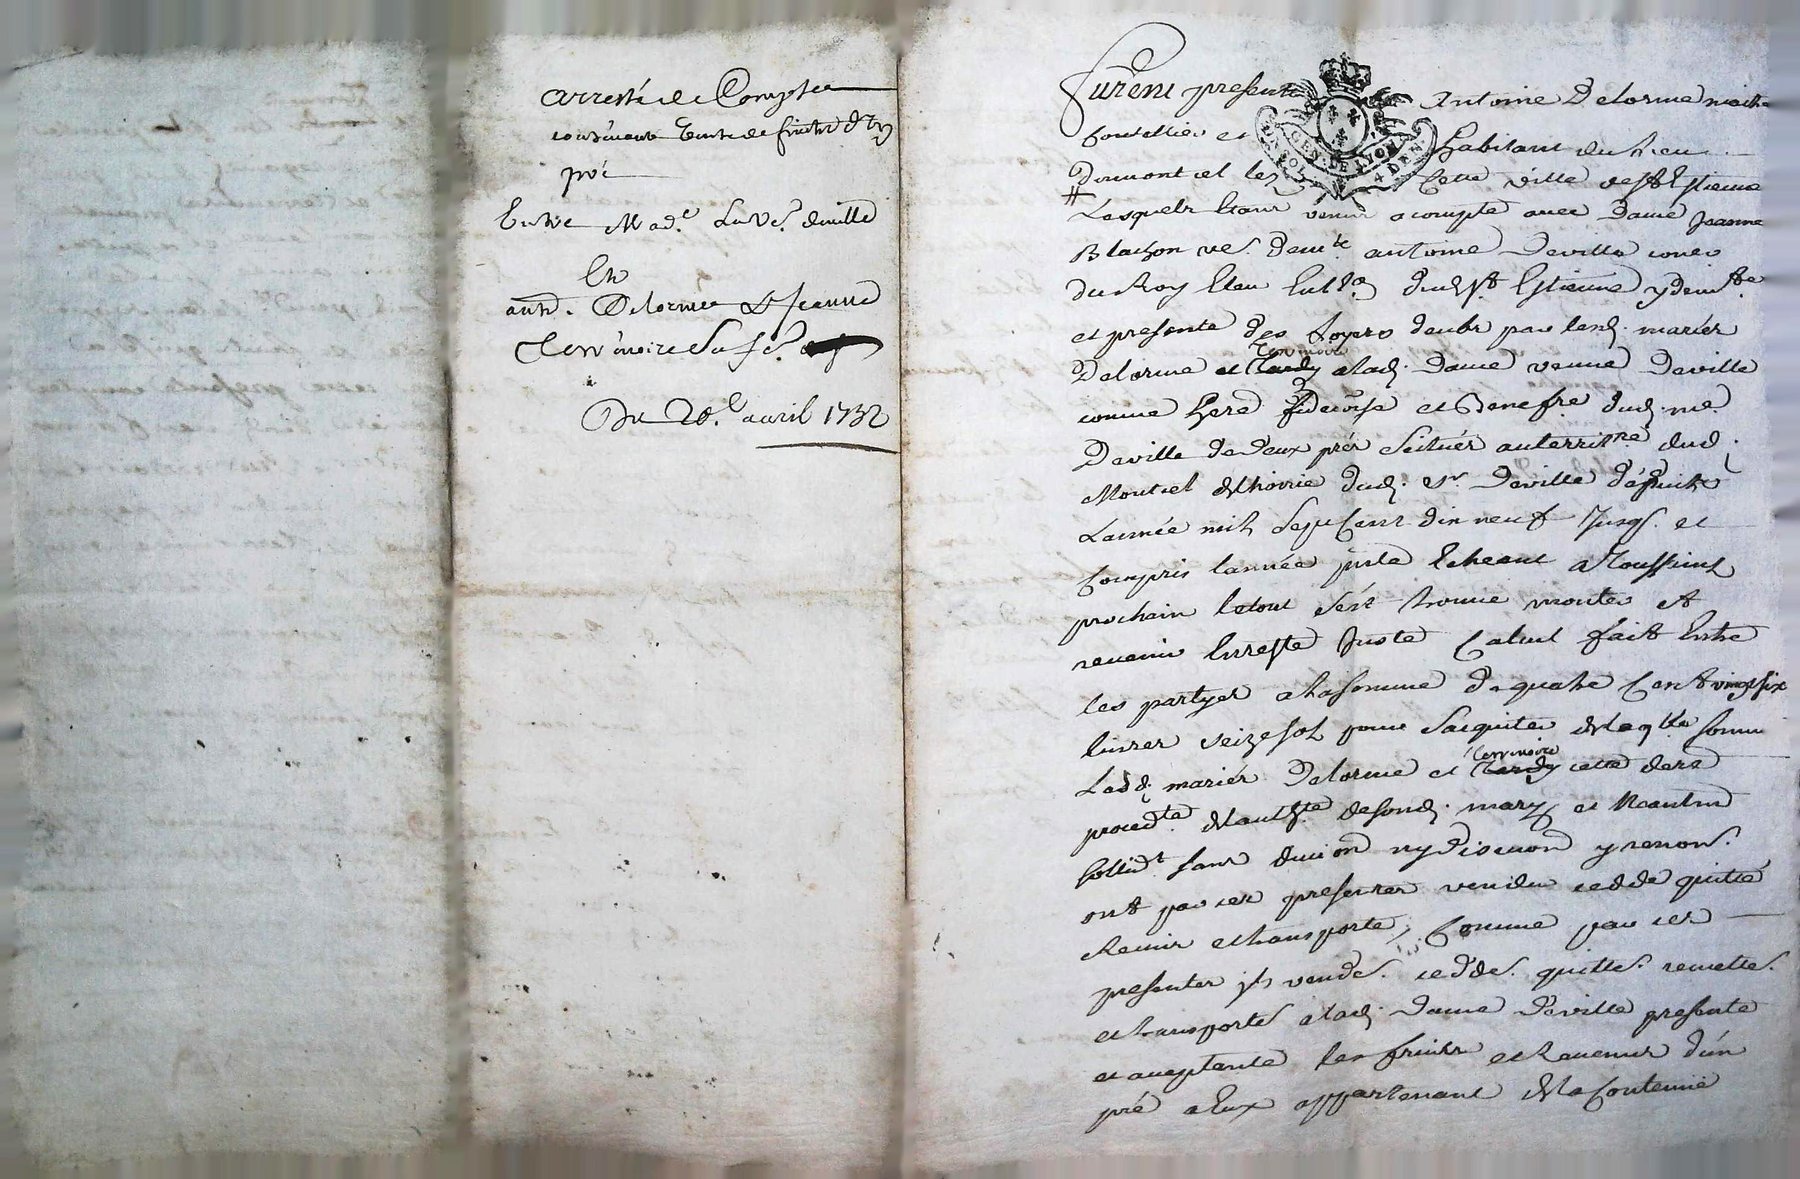 arresté de Compte
contenant vente de fruits d'un
pré
Entre Mad.e La Ve. deville
Et
anth. Delorme & Jeanne
Terrinoire sa fe.
Du 28.e avril 1732
Furent presents Antoine Delorme maitre
coutellier et habitant du lieu
de montiel les cette ville de St Estienne
Lesquels étant venu a compte avec Dame Jeanne
Blachon ve. de mre antoine Deville coner
du Roy Elau En l'on dud St Estienne y demte
et presente des loyers deubs par lesd. mariés
Delorme et Terrinoire a lad. Dame veuve Deville
comme here fiderõise et Benefre dud. me
Deville de deux prés scitués au terrire dud.
Montiel & hoirie dud. Sr. Deville depuis
L'année mil sept cent dix neuf Jusqs. et
compris l'année pnte Echeant a Toussaint
prochain le tout s'est trouvé monter et
revenir En reste Juste Calcul fait Entre
les partyes a la somme de quatre Cent vingt six
livres seize sol pour s'acquiter de laqlle somme
Lesd. mariés Delorme et Terrinoire cette dere
procedte de l'authte de sond. mary et Chacun
sollidt sans division ny discution y renons.
ont par ces presentes vendu cedde quitté
remis et transporté, Comme par ces
presentes ils vendt. ceddt. quittt. remettt.
et transportt a lad. Dame Deville presente
et acceptante les fruits et revenus d'un
pré a Eux appartenant de la Contenüe
GEN. DE LYON